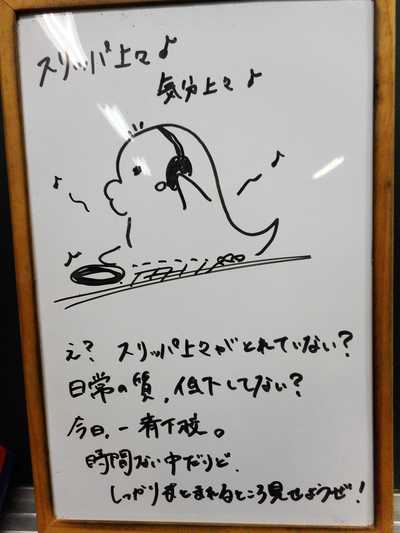 スリッパ上々♪
気分上々♪
え? スリッパ上々がとれていない?
日常の質、低下してない?
今日、一斉下校。
時間ない中だけど、
しっかりまとまれるところ見せようぜ!